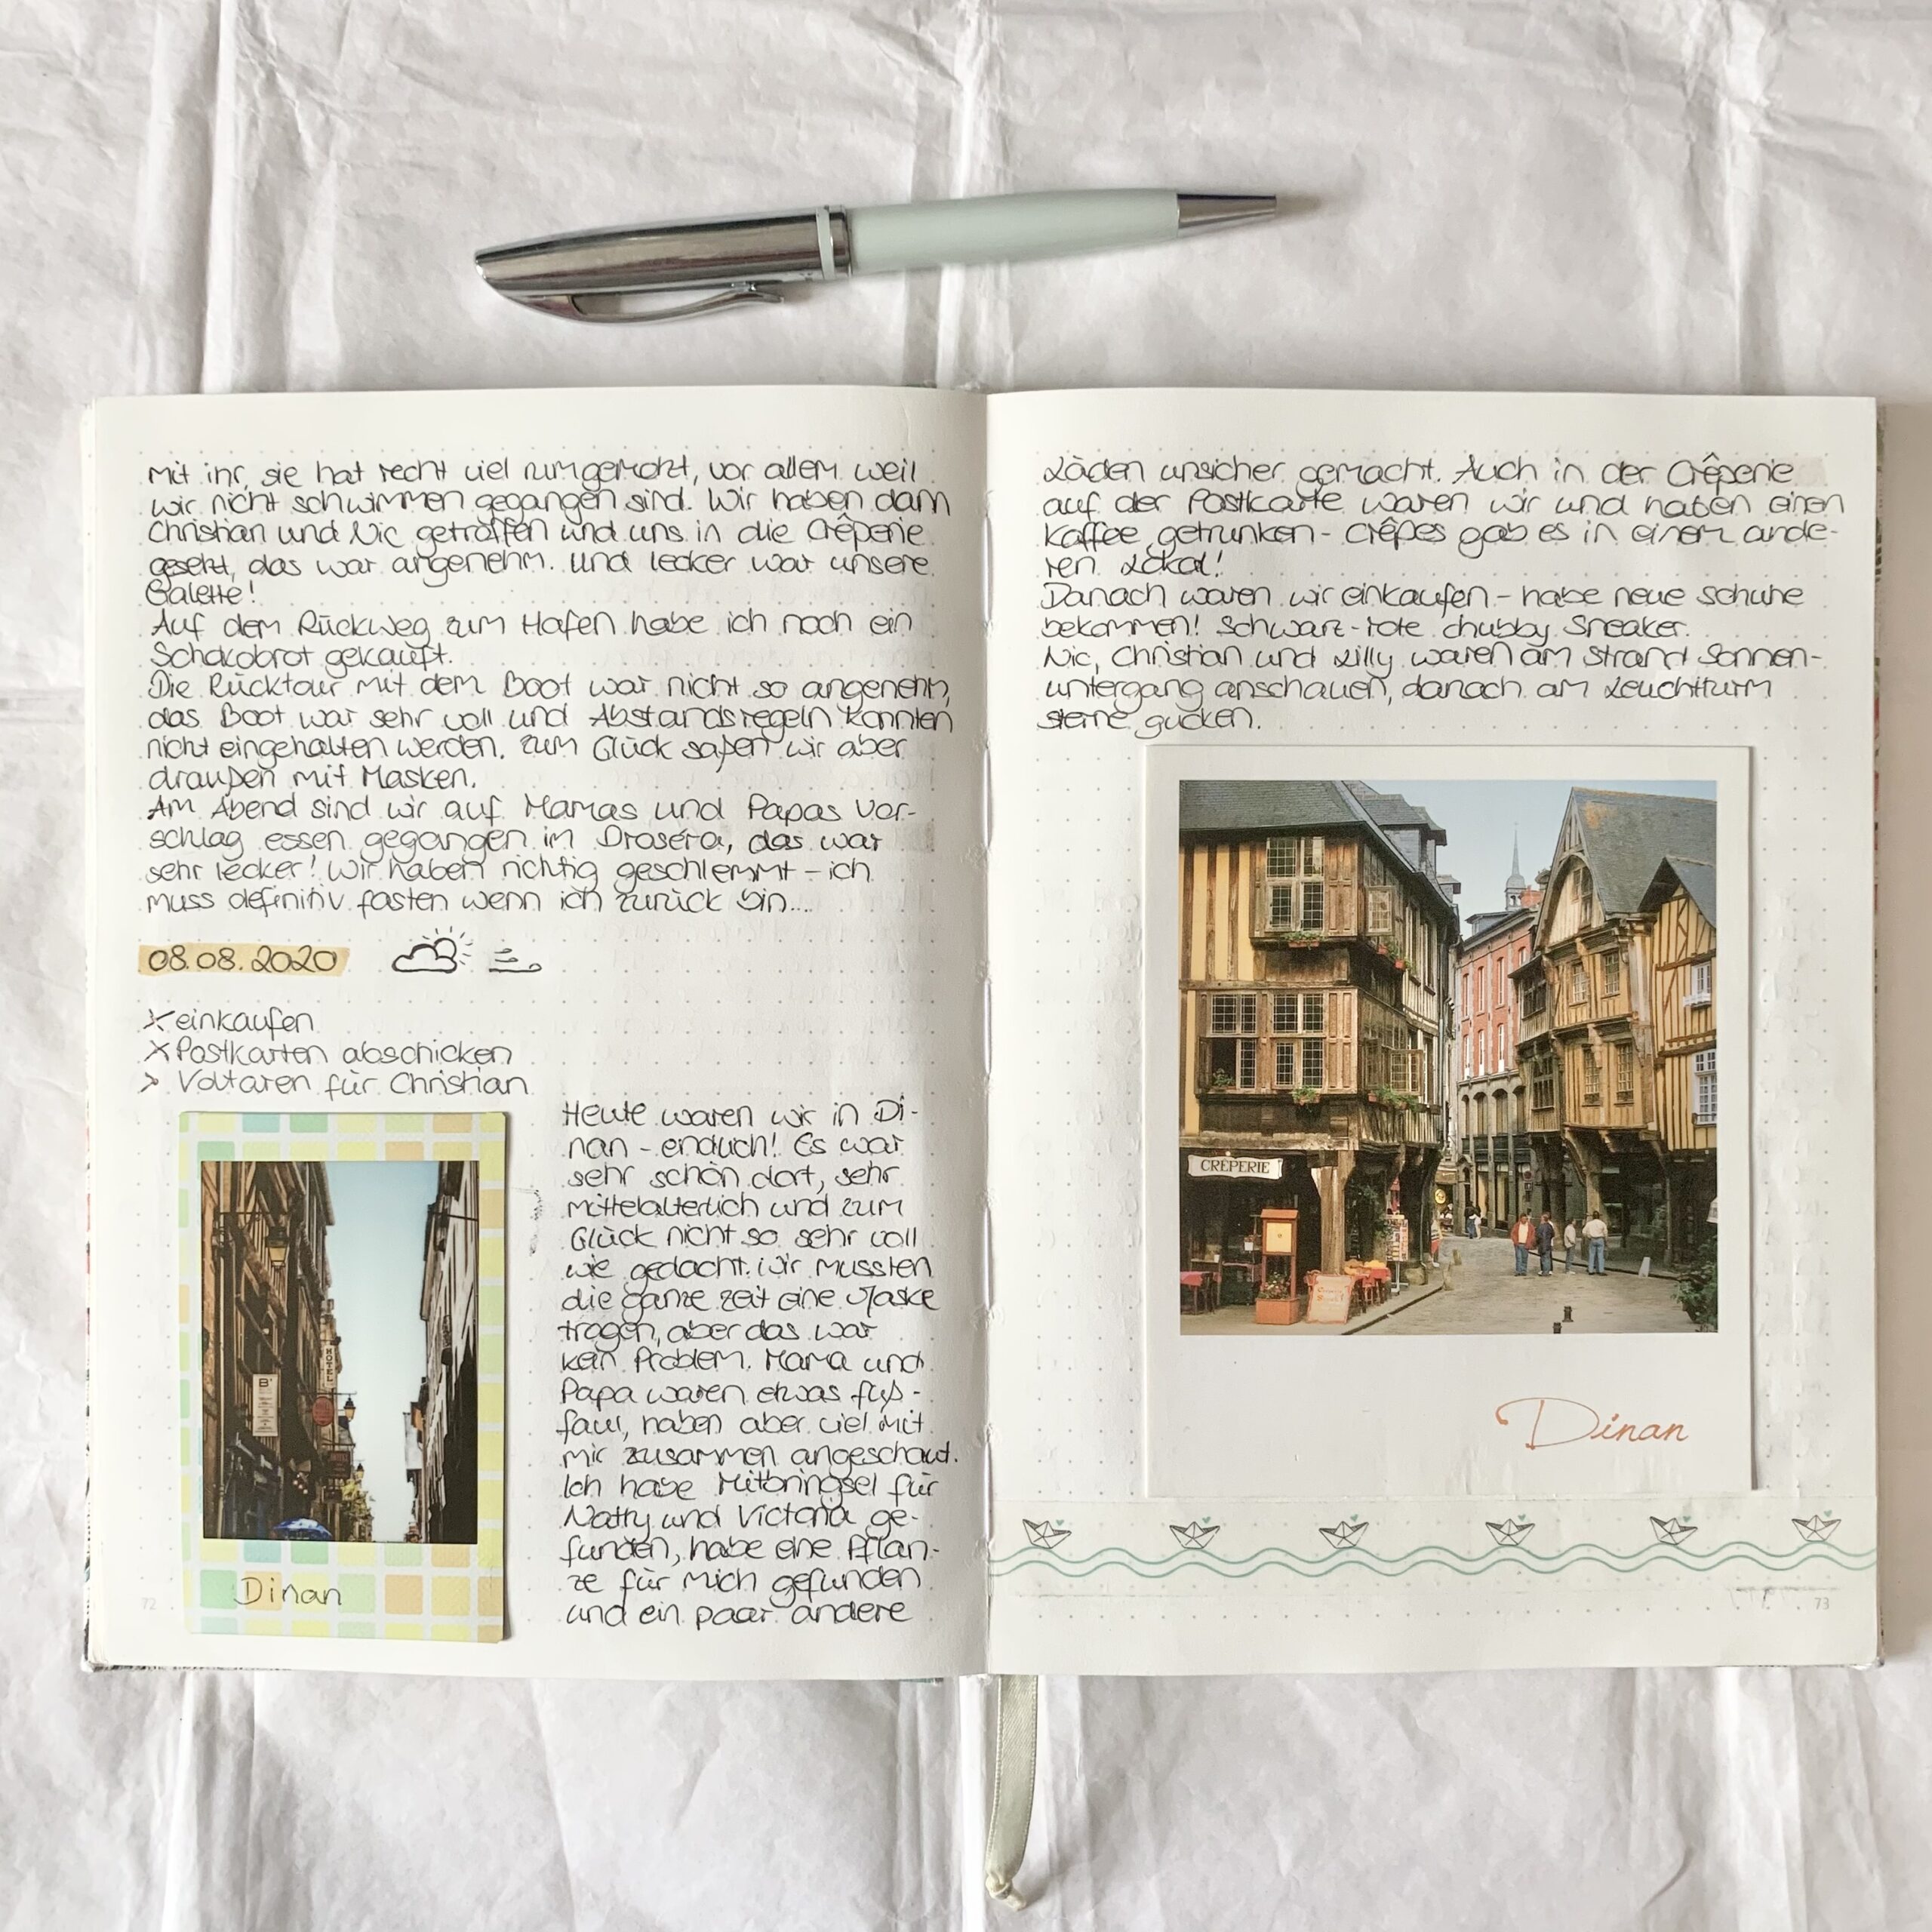 Mit ihr, sie hat recht viel rumgemotzt, vor allem weil
wir nicht schwimmen gegangen sind. Wir haben dann
Christian und Nic getroffen und uns in die Crêperie
gesetzt, das war angenehm. Und lecker war unsere
Galette!
Auf dem Rückweg zum Hafen habe ich noch ein
Schokobrot gekauft.
Die Rücktour mit dem Boot war nicht so angenehm,
das Boot war sehr voll und Abstandsregeln konnten
nicht eingehalten werden. Zum Glück saßen wir aber
draußen mit Masken.
Am Abend sind wir auf Mamas und Papas Vor-
schlag essen gegangen im Droséra, das war
sehr lecker! Wir haben richtig geschlemmt - ich
muss definitiv fasten wenn ich zurück bin...
08.08.2020
einkaufen
Postkarten abschicken
> Voltaren für Christian
Heute waren wir in Di-
nan - endlich! Es war
sehr schön dort, sehr
mittelalterlich und zum
Glück nicht so sehr voll
wie gedacht. Wir mussten
die ganze Zeit eine Maske
tragen, aber das war
kein Problem. Mama und
Papa waren etwas fuß-
faul, haben aber viel mit
mir zusammen angeschaut.
Ich habe Mitbringsel für
Natty und Victoria ge-
funden, habe eine Pflan-
ze für mich gefunden
und ein paar andere
HOTEL
B'
Dinan
72
Läden unsicher gemacht. Auch in der Crêperie
auf der Postkarte waren wir und haben einen
Kaffee getrunken - Crêpes gab es in einem ande-
ren Lokal!
Danach waren wir einkaufen - habe neue Schuhe
bekommen! Schwarz-rote chubby Sneaker.
Nic, Christian und Lilly waren am Strand Sonnen-
untergang anschauen, danach am Leuchtturm
Sterne gucken.
CRÊPERIE
Dinan
73